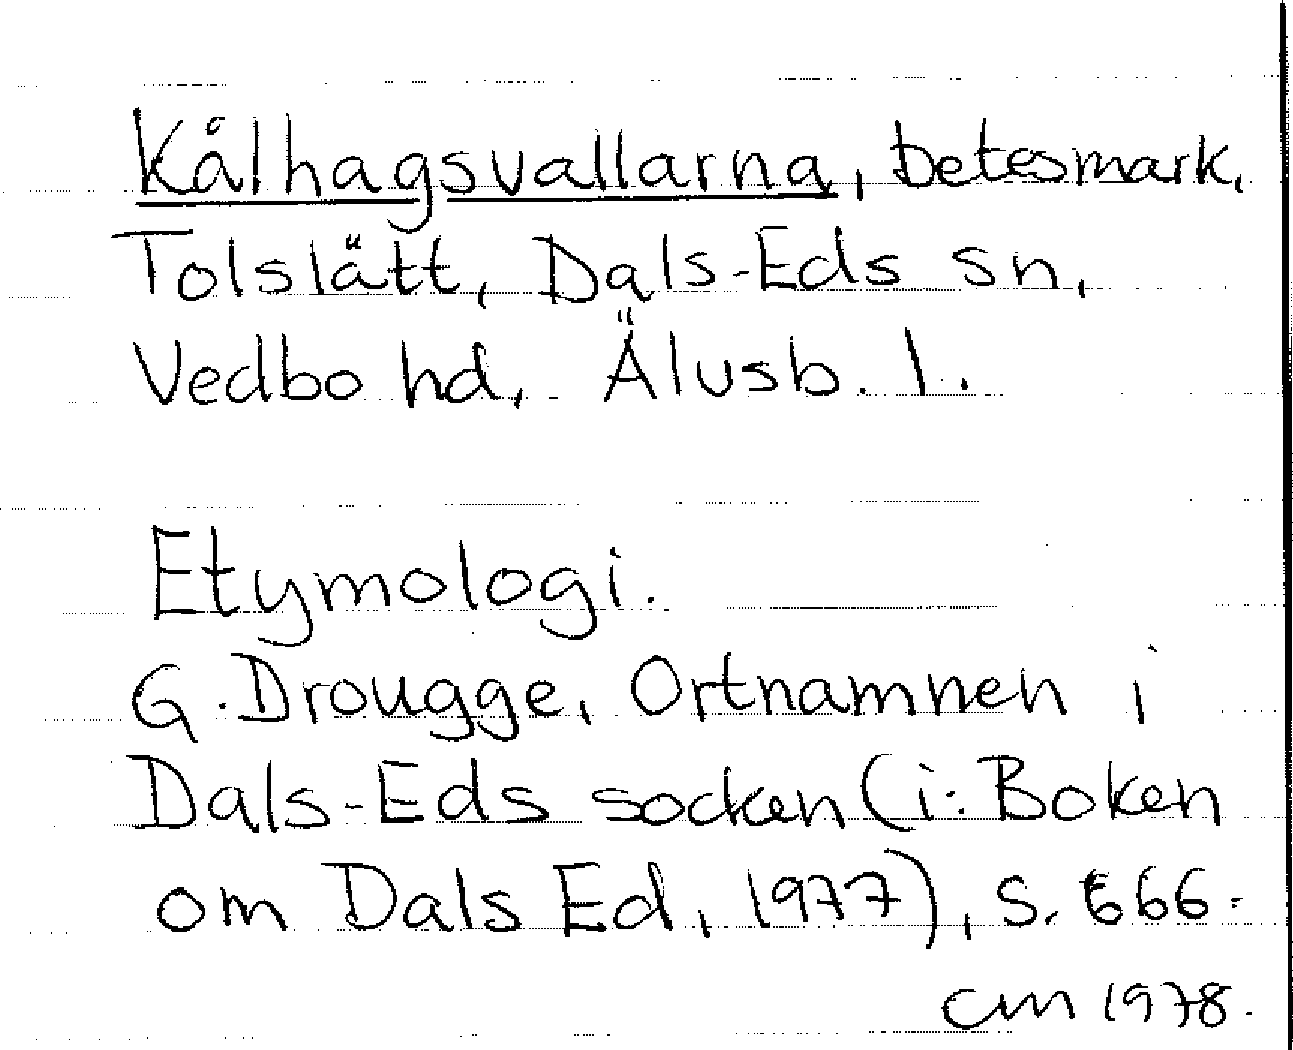 Kålhagsvallarna, betesmark,
Tolslätt, Dals-Eds sn,
Vedbo hd, Älvsb. l.
Etymologi.
G. Drougge, Ortnamnen i
Dals-Eds socken (i: Boken
om Dals Ed, 1977), s. 666.
CM 1978.